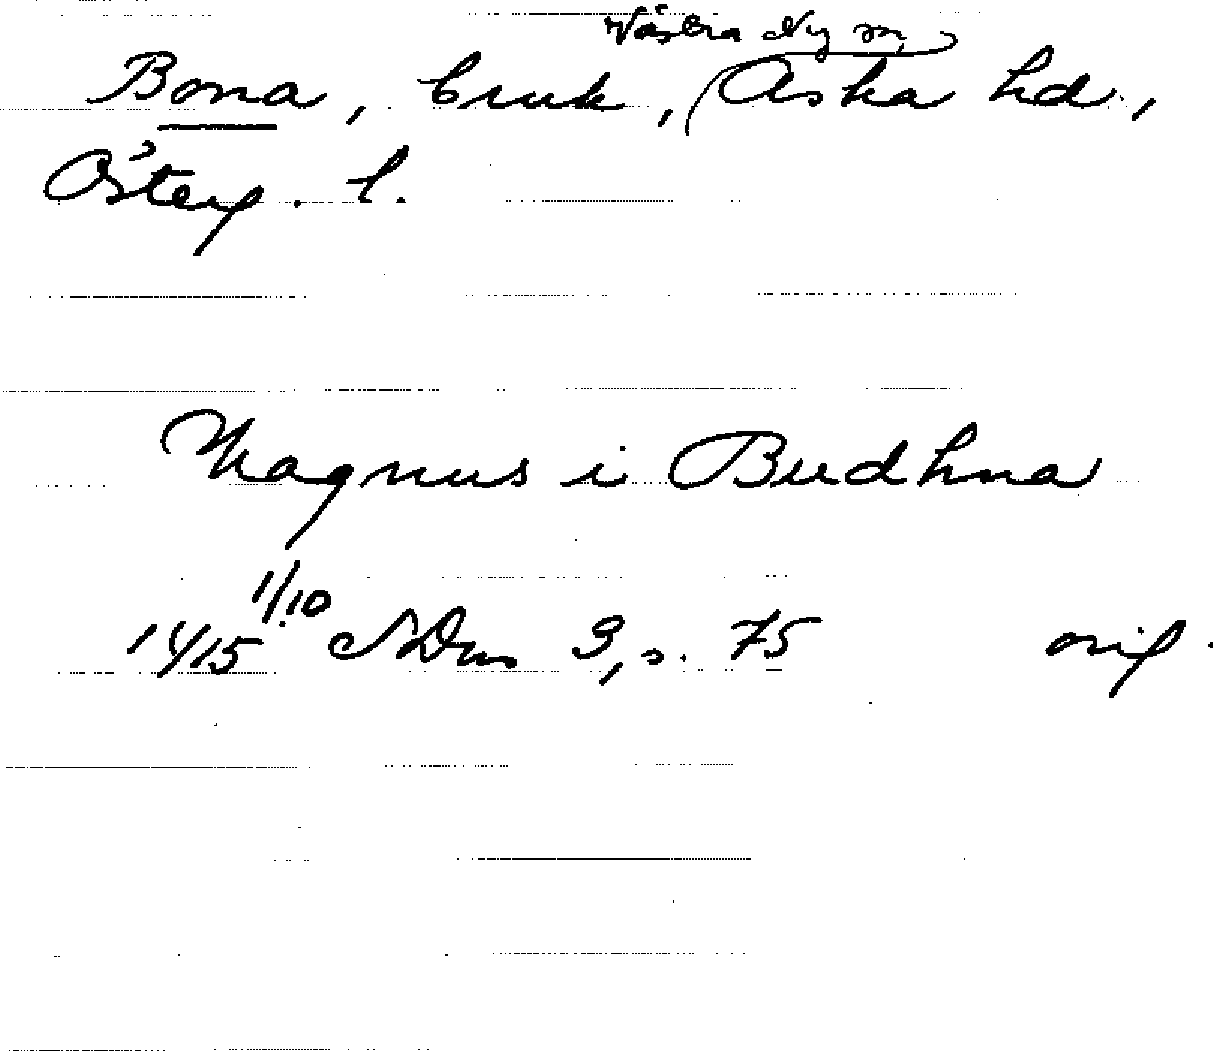 Västra Ny sn,
Bona, bruk, (Aska hd.,
Österg. l.
Magnus i Budhna
1415 1/10 SDns 3, s. 75 orig.